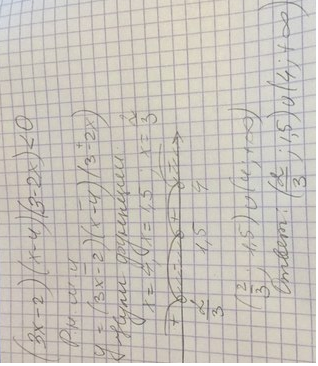 (3x-2)(x-4)(3-2x)<0
y = (3x-2)(x-4)(3-2x)
нули функции:
x=4, x=1,5 x=2/3
+ - + -
2/3 1,5 4
(2/3; 1,5)∪(4;+∞)
Ответ: (2/3; 1,5)∪(4;+∞)